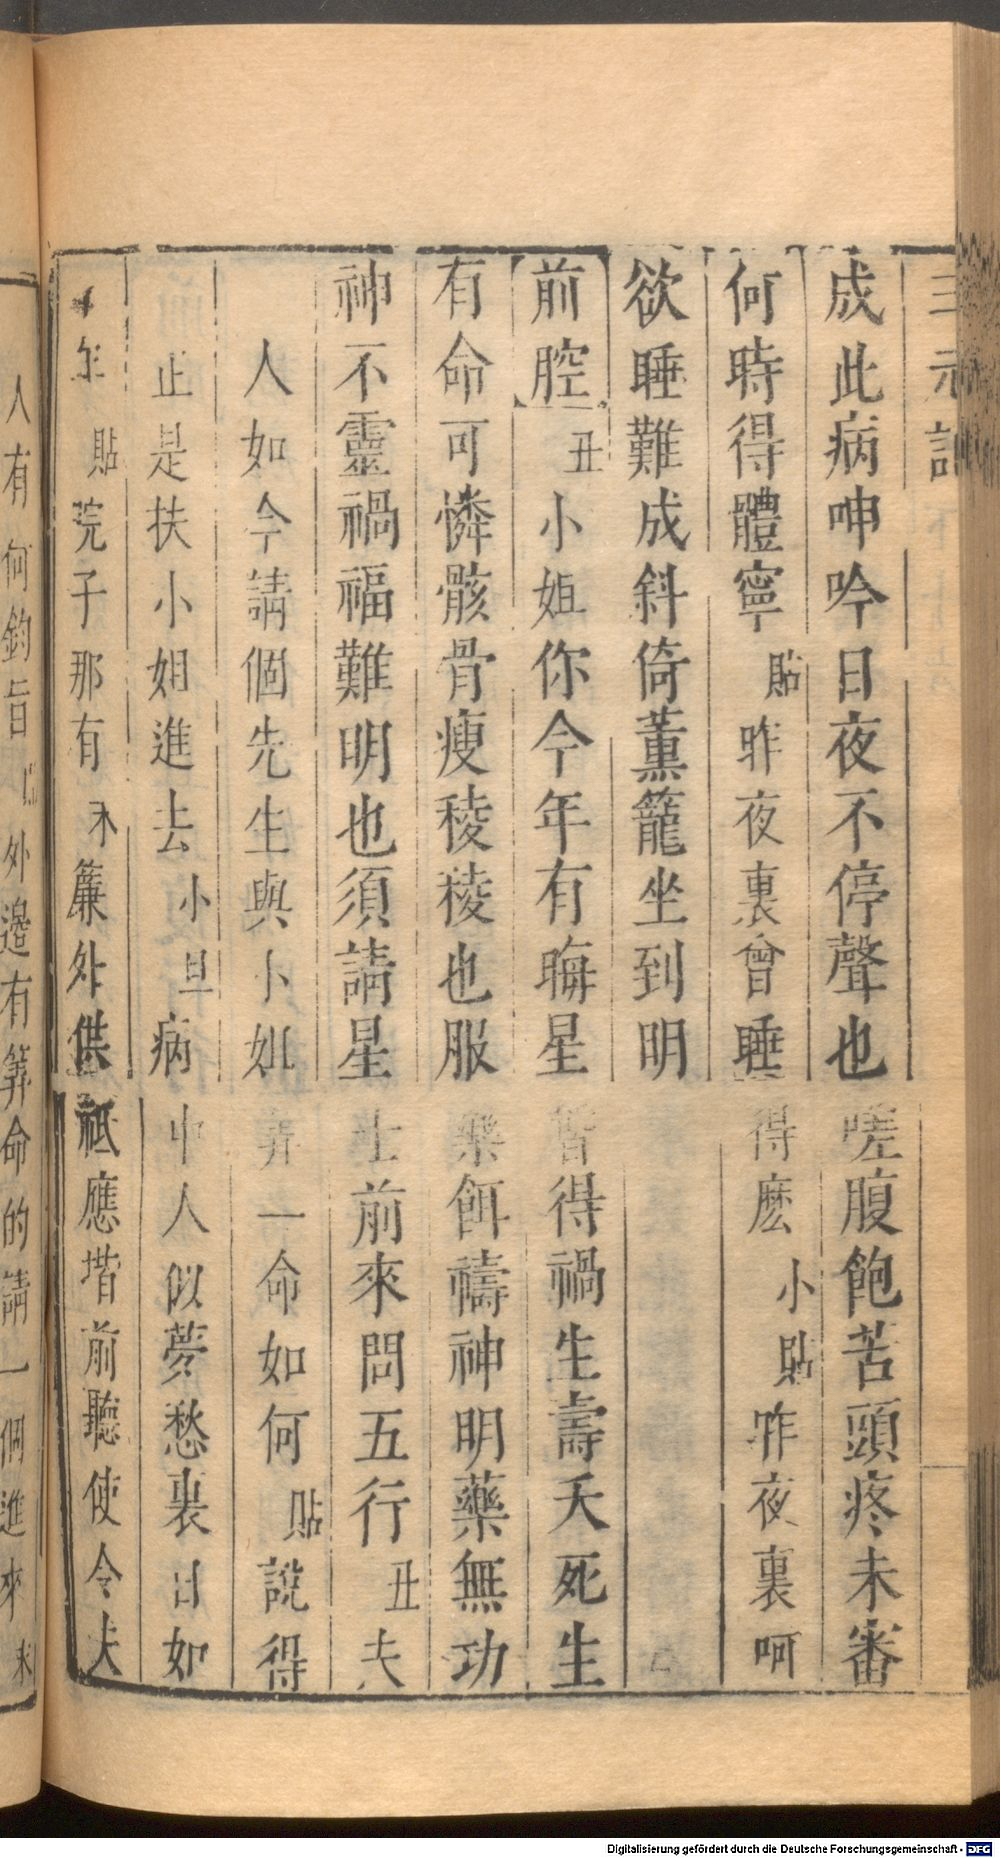 三元記
成此病呻吟日夜不停聲也嗟腹飽苦頭疼未審
何時得體寧貼昨夜裏曾睡得麽小貼昨夜裏呵
欲睡難成斜倚薰籠坐到明
前腔丑小姐你今年有晦星皆得禍生壽夭死生
有命可憐骸骨瘦稜稜也服藥餌禱神明藥無功
神不靈禍福難明也須請星士前來問五行丑夫
人如今請個先生與小姐算一命如何貼說得
是扶小姐進去小旦病中人似夢愁裏日如
年貼院子那有末簾外供祗應堦前聽使令夫
人有何鈞旨外邊有筭命的請一個進來末
Digitalisierung gefördert durch die Deutsche Forschungsgemeinschaft - DFG